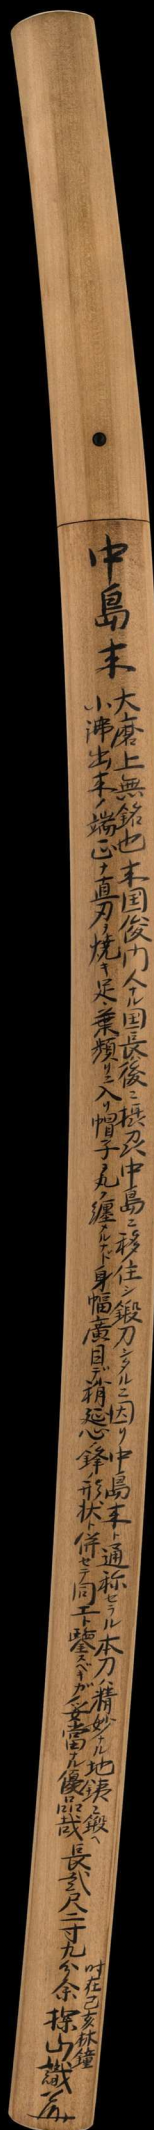 中島来
大磨上無銘也 来国俊門人ナル国長後ニ摂刕中島ニ移住シ鍛刀シタルニ因リ中島来ト通称セラル 本刀ノ精妙ナル地鉄ニ鍛ヘ
小沸出来ノ端正ナ直刃ヲ焼キ足・葉頻リニ入リ帽子ヲ丸ク纏メルナド 身幅廣目デ稍延心ノ鋒形状ト併セテ同工ト鑒スベキガ妥當ナル優品哉 長貳尺二寸九分余 探山識
時在己亥林鐘